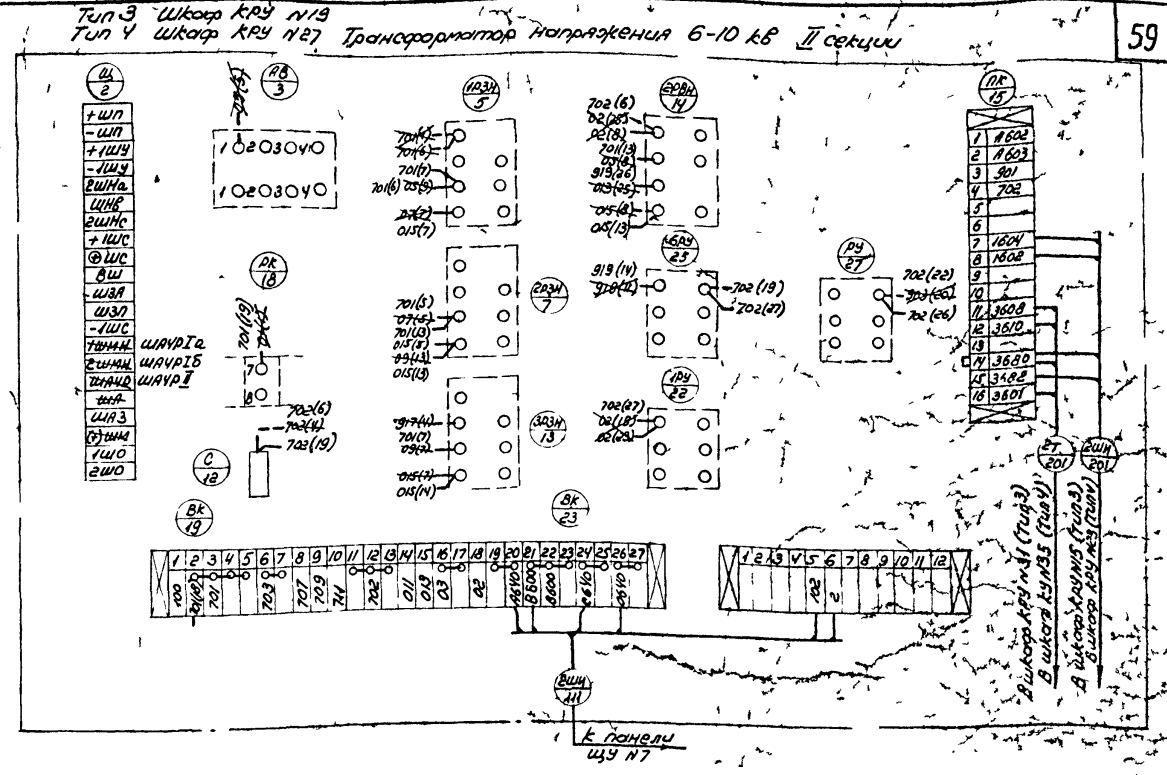 Тип 3 Шкаф КРУ N19
Тип 4 Шкаф КРУ N27 Трансформатор напряжения 6-10 кВ II секции
59
Щ
2
+ШП
-ШП
+1ШУ
-1ШУ
2ШНа
ШНВ
2ШНс
+1ШС
⊕ШС
ВШ
-ШЗА
ШЗП
-1ШС
1ШМН ШАЧРIа
2ШМН ШАЧРIб
ШАЧР ШАЧРII
ША
ШАЗ
1ШО
2ШО
АВ
3
1 2 3 4
1 2 3 4
РК
18
701(19)
7
8
702(6)
702(4)
702(19)
С
12
1РЗН
5
701(4)
701(6)
701(7)
701(6) 05(9)
07(7)
015(7)
2РЗН
7
701(5)
07(5)
701(13)
015(5)
09(13)
015(13)
3РЗН
13
917(4)
701(7)
09(7)
015(7)
015(14)
2РВН
14
702(6)
02(25)
02(8)
701(13)
03(8)
919(26)
013(25)
015(8)
015(13)
БРУ
25
919(14)
919(14)
702(19)
702(27)
1РУ
22
702(27)
02(18)
02(23)
РУ
27
702(22)
703(20)
702(26)
ПК
15
1 А602
2 А603
3 901
4 702
5
6
7 1604
8 1602
9
10
11 3608
12 3610
13
14 3680
15 3482
16 3601
2Т
201
2ШН
201
В шкаф КРУ N31 (Тип3)
В шкаф КРУ N35 (Тип4)
В шкаф КРУ N15 (Тип3)
В шкаф КРУ N23 (Тип4)
ВК
19
ВК
23
1 2 3 4 5 6 7 8 9 10 11 12 13 14 15 16 17 18 19 20 21 22 23 24 25 26 27
100 701 703 707 709 711 702 011 013 03 02 А640 В600 В600 С640 0640
1 2 3 4 5 6 7 8 9 10 11 12
102 2
2ШН
111
К панели
ЩУ N7